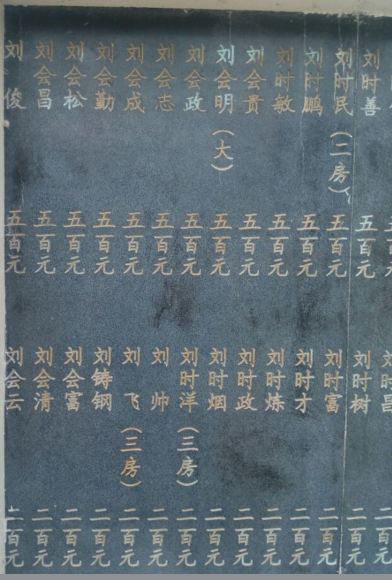 刘时善 五百元
刘时民（二房） 五百元
刘时鹏 五百元
刘时敏 五百元
刘会贵 五百元
刘会明（大） 五百元
刘会政 五百元
刘会志 五百元
刘会成 五百元
刘会勤 五百元
刘会松 五百元
刘会昌 五百元
刘俊 五百元
刘时树 二百元
刘时富 二百元
刘时才 二百元
刘时炼 二百元
刘时政 二百元
刘时烟 二百元
刘时洋（三房） 二百元
刘帅 二百元
刘飞（三房） 二百元
刘铸钢 二百元
刘会富 二百元
刘会清 二百元
刘会云 二百元